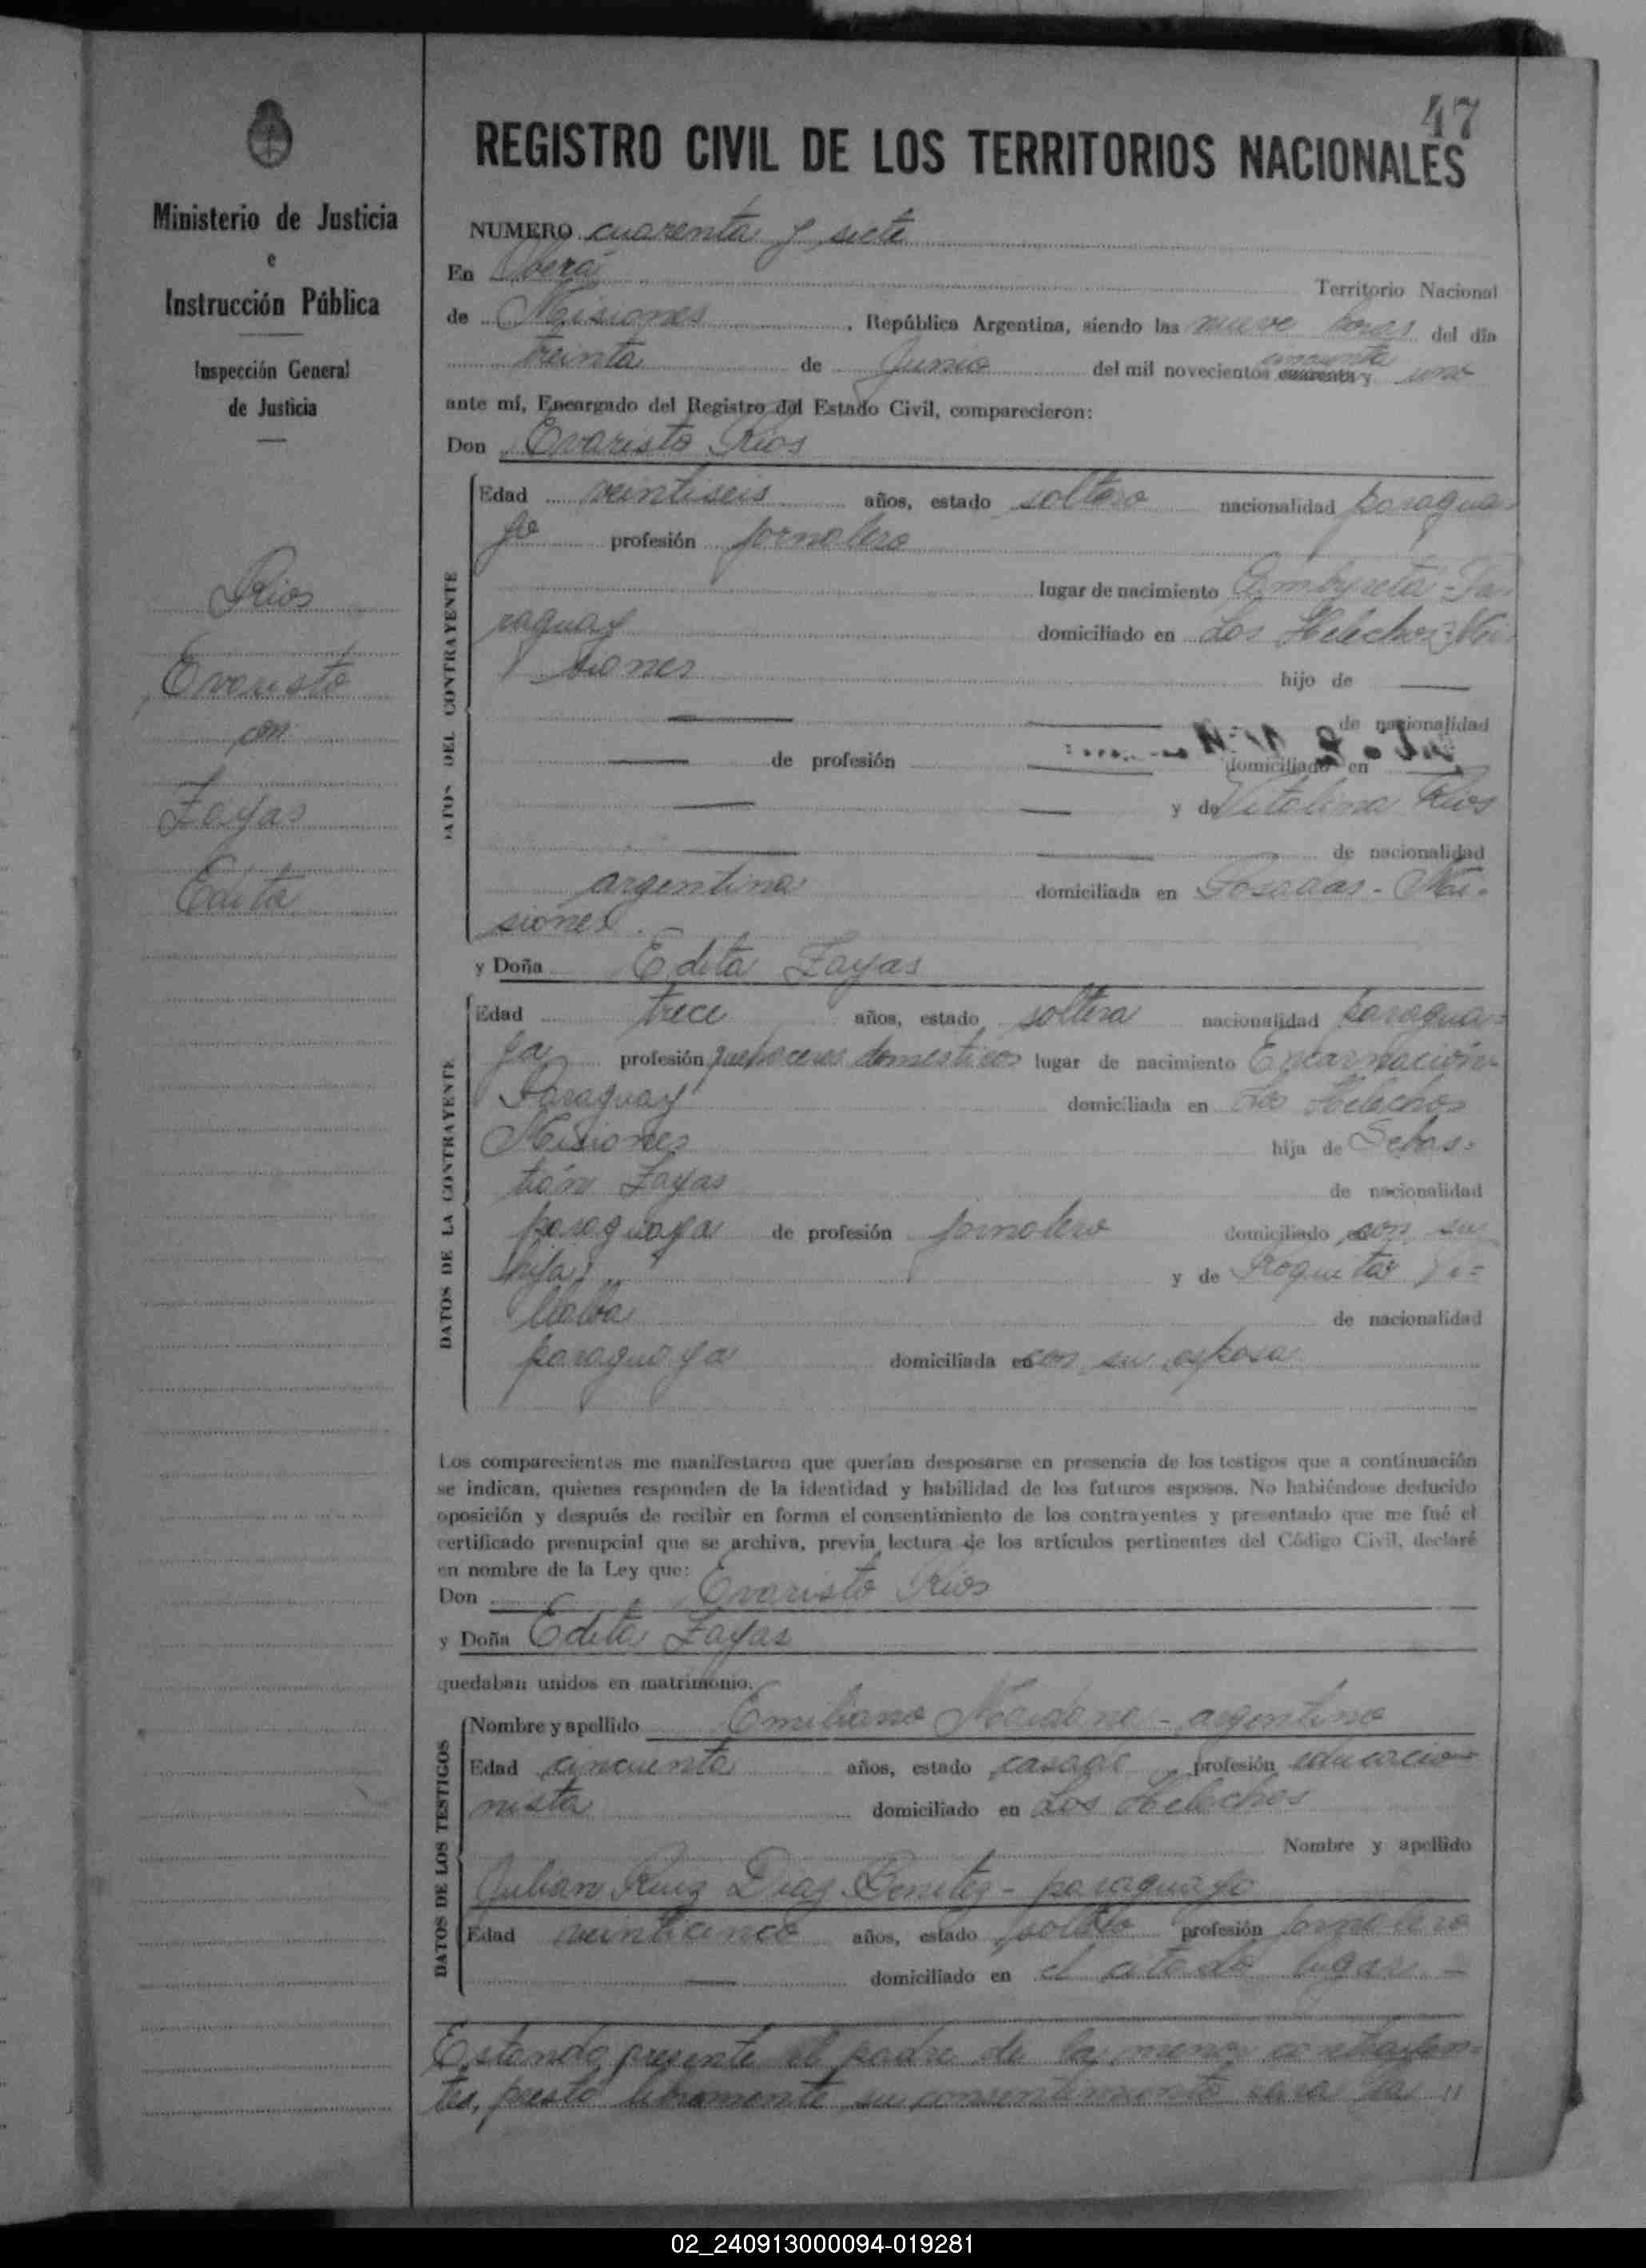 47
REGISTRO CIVIL DE LOS TERRITORIOS NACIONALES
Ministerio de Justicia
e
Instrucción Pública
Inspección General
de Justicia
Rios
Evaristo
con
Zayas
Edita
NUMERO cuarenta y siete
En Oberá
Territorio Nacional
de Misiones, República Argentina, siendo las nueve horas del día
treinta de Junio del mil novecientos cuarenta y cincuenta uno
ante mí, Encargado del Registro del Estado Civil, comparecieron:
Don Evaristo Rios
DATOS DEL CONTRAYENTE
Edad veintiseis años, estado soltero nacionalidad paragua-
yo profesión jornalero
lugar de nacimiento Cambyreta - Pa-
raguay domiciliado en Los Helechos - Mi-
siones hijo de —
— — de nacionalidad
— de profesión — domiciliado en —
— — y de Vitalina Rios
— — de nacionalidad
argentina domiciliada en Posadas - Mi-
siones.
y Doña Edita Zayas
DATOS DE LA CONTRAYENTE
Edad trece años, estado soltera nacionalidad paragua-
ya profesión quehaceres domesticos lugar de nacimiento Encarnación-
Paraguay domiciliada en Los Helechos
Misiones hija de Sebas-
tián Zayas de nacionalidad
paraguaya de profesión jornalero domiciliado en con su
hija y de Roquita Vi-
llalba de nacionalidad
paraguaya domiciliada en con su esposo
Los comparecientes me manifestaron que querían desposarse en presencia de los testigos que a continuación
se indican, quienes responden de la identidad y habilidad de los futuros esposos. No habiéndose deducido
oposición y después de recibir en forma el consentimiento de los contrayentes y presentado que me fué el
certificado prenupcial que se archiva, previa lectura de los artículos pertinentes del Código Civil, declaré
en nombre de la Ley que:
Don Evaristo Rios
y Doña Edita Zayas
quedaban unidos en matrimonio.
DATOS DE LOS TESTIGOS
Nombre y apellido Emiliano - argentino
Edad cincuenta años, estado casado profesión educacio-
nista domiciliado en Los Helechos
Nombre y apellido
Julian Ruiz Diaz Benitez - paraguayo
Edad veinticinco años, estado soltero profesión jornalero
— domiciliado en el citado lugar —
Estando presente el padre de la menor contrayen-
te, prestó libremente su consentimiento para la "
02_240913000094-019281